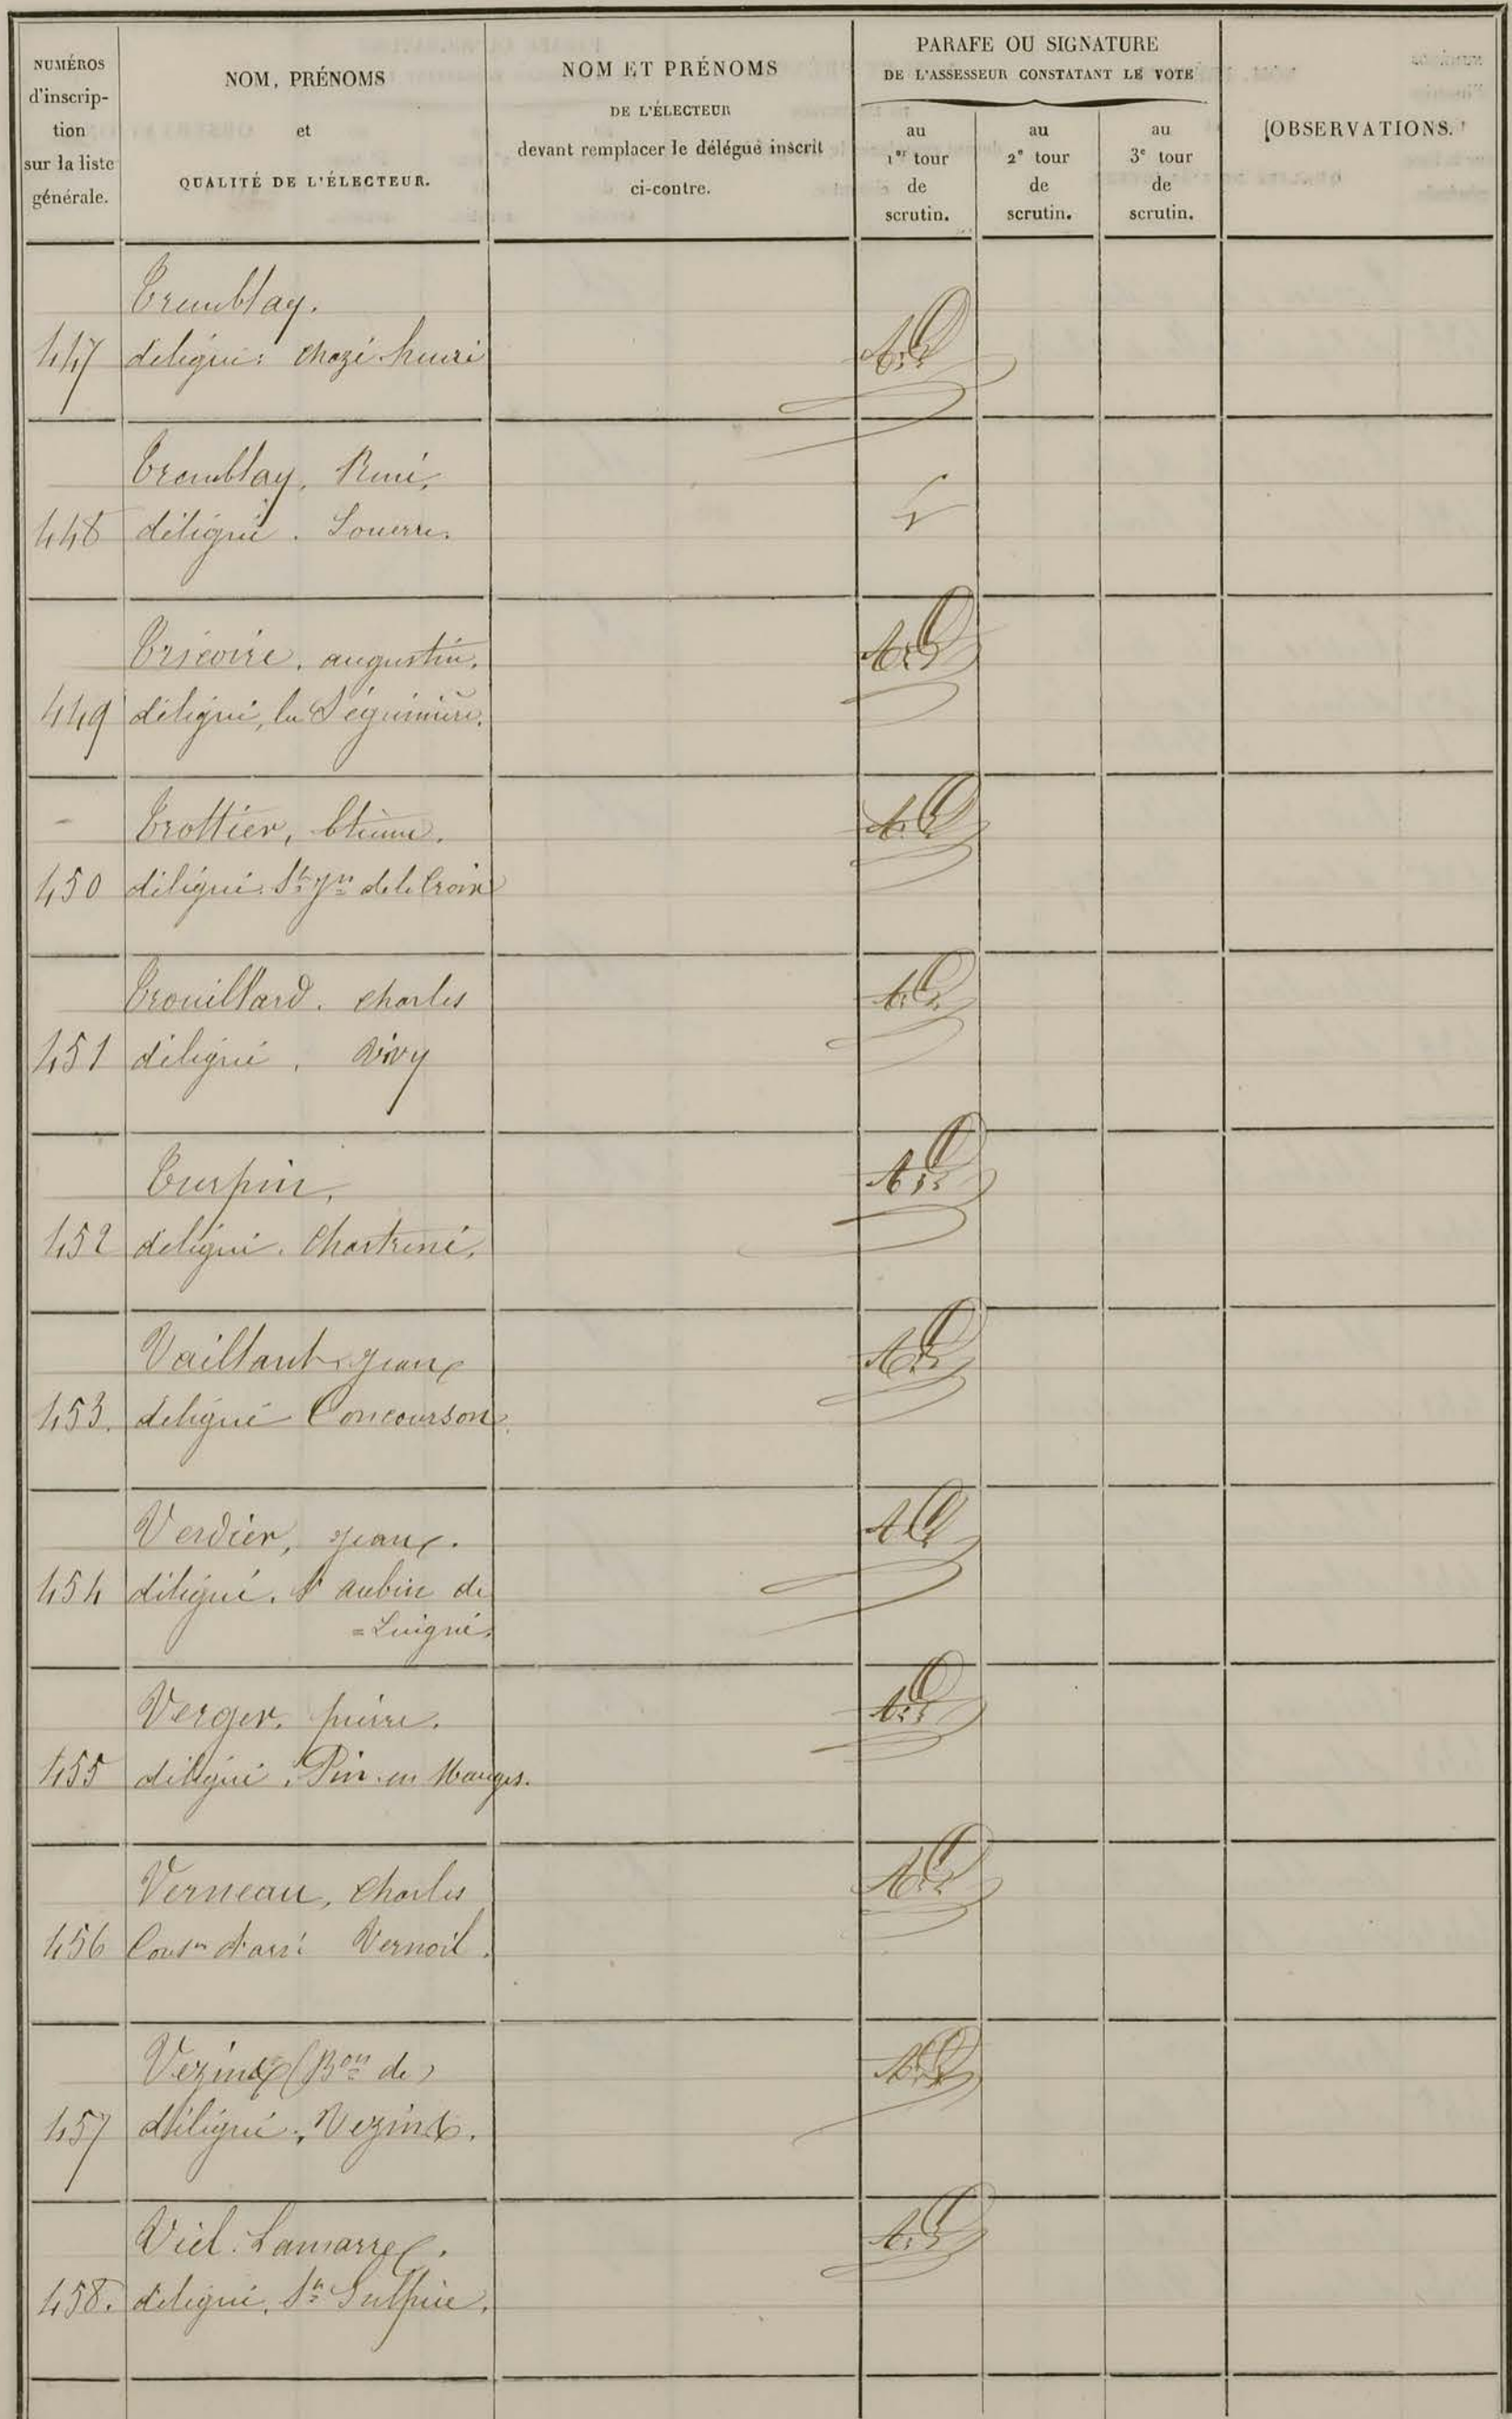 NUMÉROS
d'inscrip-
tion
sur la liste
générale.
NOM, PRÉNOMS
et
QUALITÉ DE L'ÉLECTEUR.
NOM ET PRÉNOMS
DE L'ÉLECTEUR
devant remplacer le délégué inscrit
ci-contre.
PARAFE OU SIGNATURE
DE L'ASSESSEUR CONSTATANT LE VOTE
au
1er tour
de
scrutin.
au
2e tour
de
scrutin.
au
3e tour
de
scrutin.
OBSERVATIONS.
Tremblay.
447 délégué: Chazé henri
Tremblay, René,
448 délégué. Louerre.
Tricoire, augustin,
449 délégué, la Séguinière.
Trottier, Etienne.
450 délégué. St Jn de la Croix
Trouillard. Charles
451 délégué, Vivy
Turpin,
452 délégué. Chartrené,
Vaillant jean
453. délégué Concourson
Verdier, jean.
454 délégué. St aubin de
=Luigné.
Verger. pierre.
455 délégué, Pin en Mauges.
Verneau, Charles
456 Consr d'arrt Vernoil.
Vezins (Bon de)
457 délégué, Vezins.
Viel Lamarre.
458. délégué, St Sulpice.